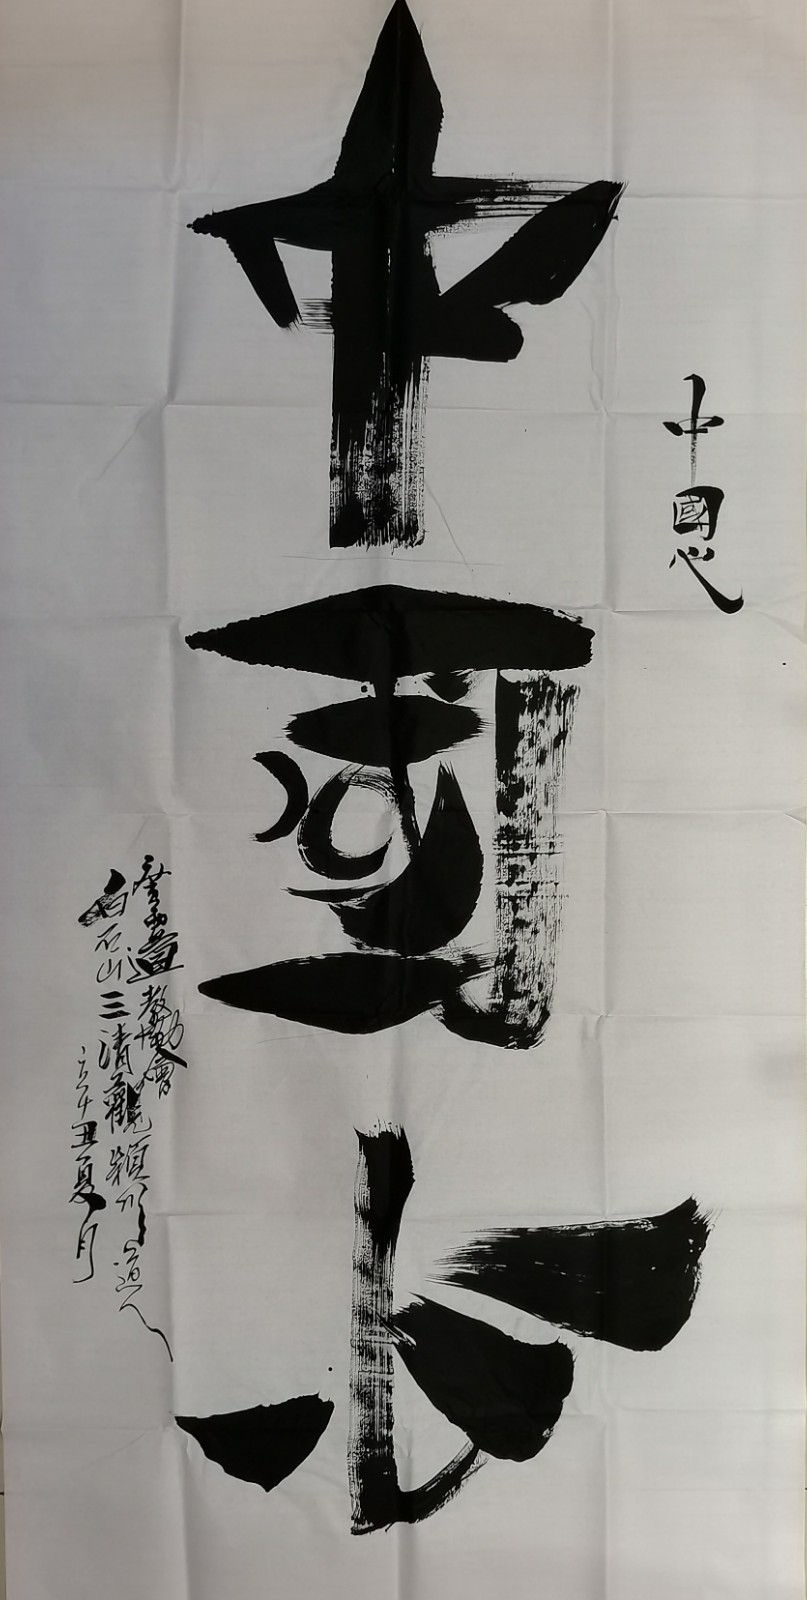 中國心
中國心
廣西道教協會
白石山三清觀
道人
辛丑夏月